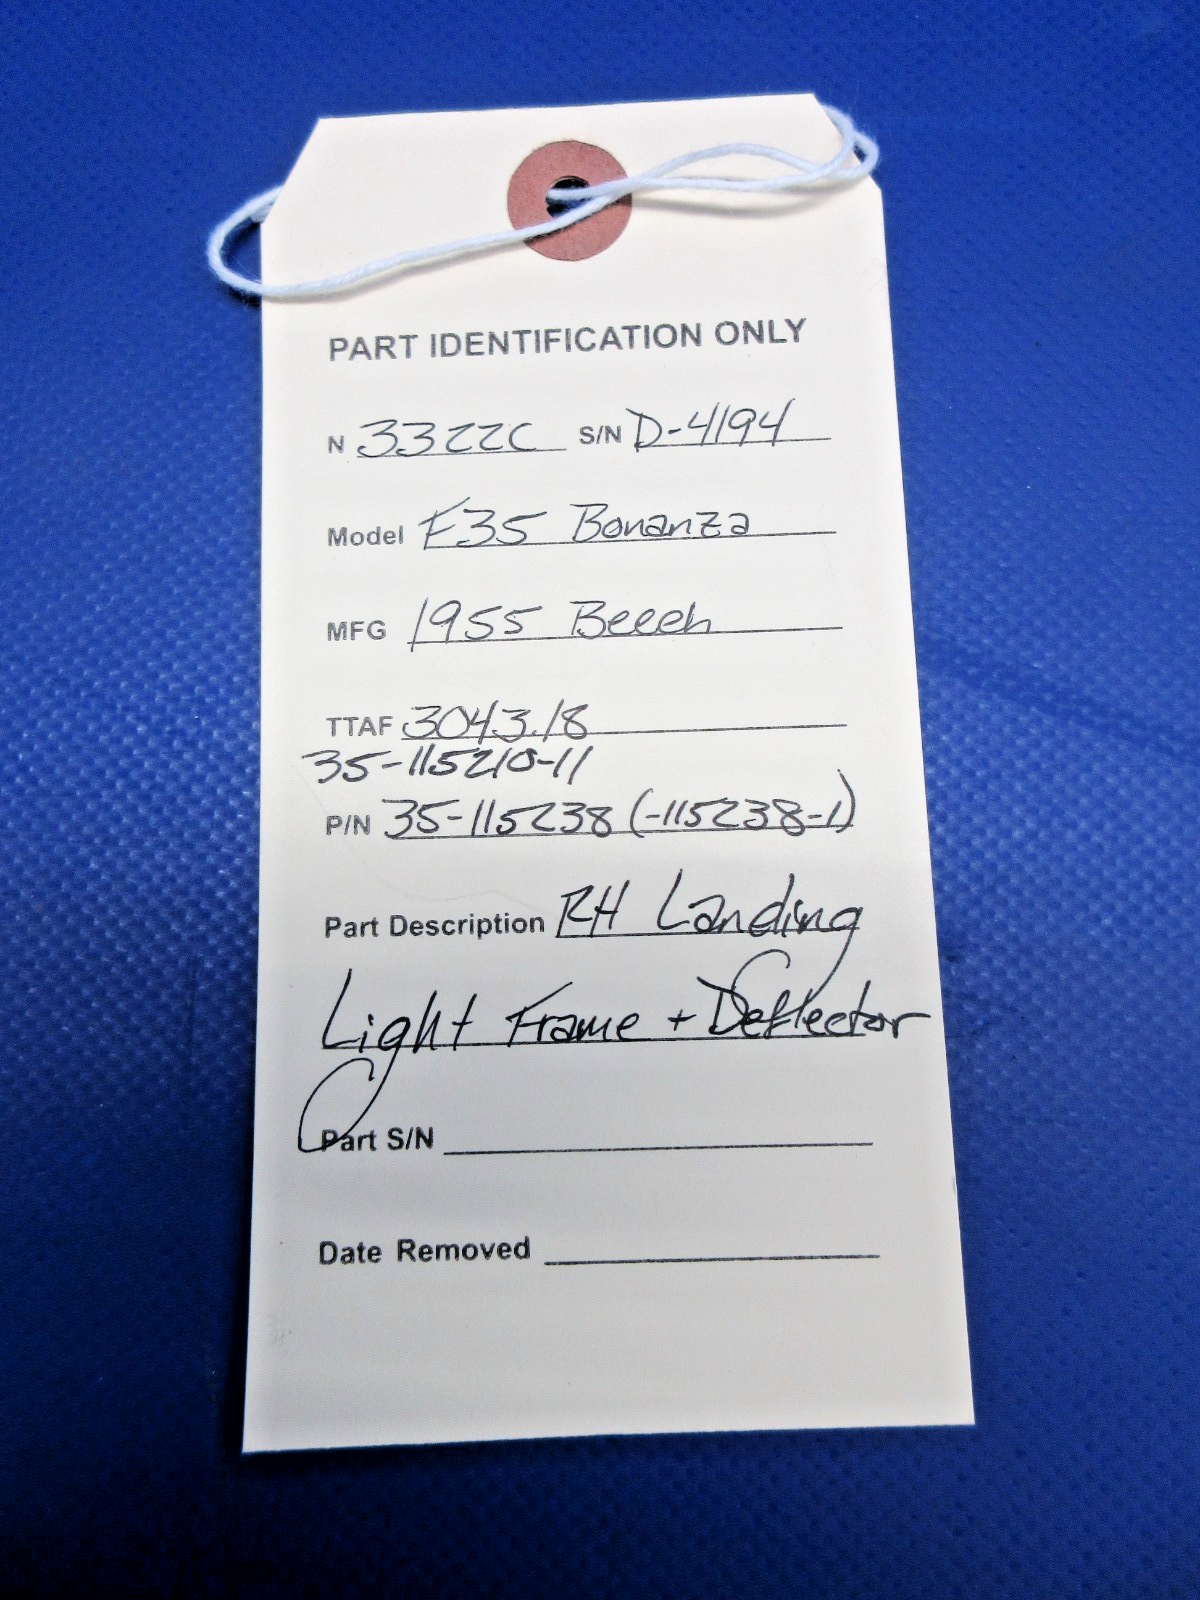 PART IDENTIFICATION ONLY
N 3322C S/N D-4194
Model F35 Bonanza
MFG 1955 Beech
TTAF 3043.18
35-115210-11
P/N 35-115238 (-115238-1)
Part Description RH Landing
Light Frame + Deflector
Part S/N
Date Removed